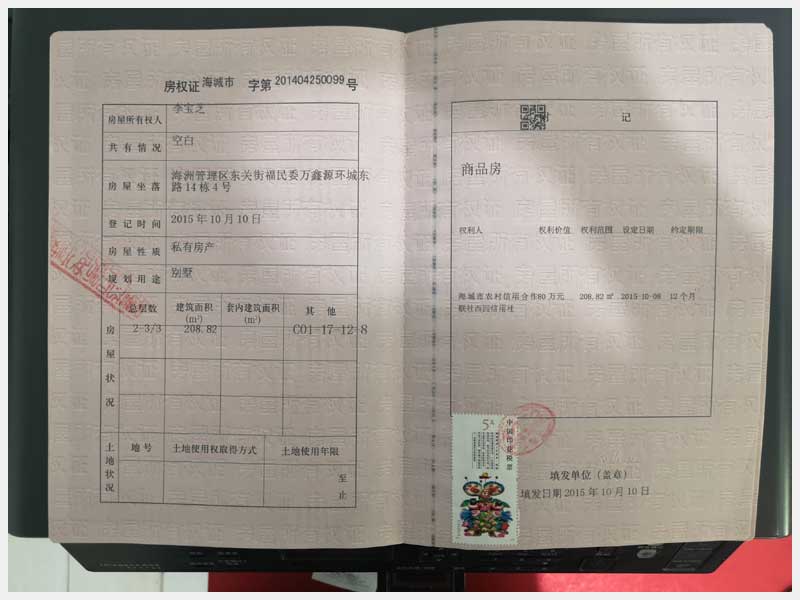 房权证 海城市 字第 201404250099 号
房屋所有权人 李宝芝
共有情况 空白
房屋坐落 海洲管理区东关街福民委万鑫源环城东
路14栋4号
登记时间 2015年10月10日
房屋性质 私有房产
规划用途 别墅
房屋状况
总层数 建筑面积(m²) 套内建筑面积(m²) 其他
2-3/3 208.82 C01-17-12-8
土地状况
地号 土地使用权取得方式 土地使用年限
至
止
记
商品房
权利人 权利价值 权利范围 设定日期 约定期限
海城市农村信用合作 80万元 208.82㎡ 2015-10-08 12个月
联社西园信用社
5元
中国印花税票
填发单位（盖章）
填发日期 2015年10月10日